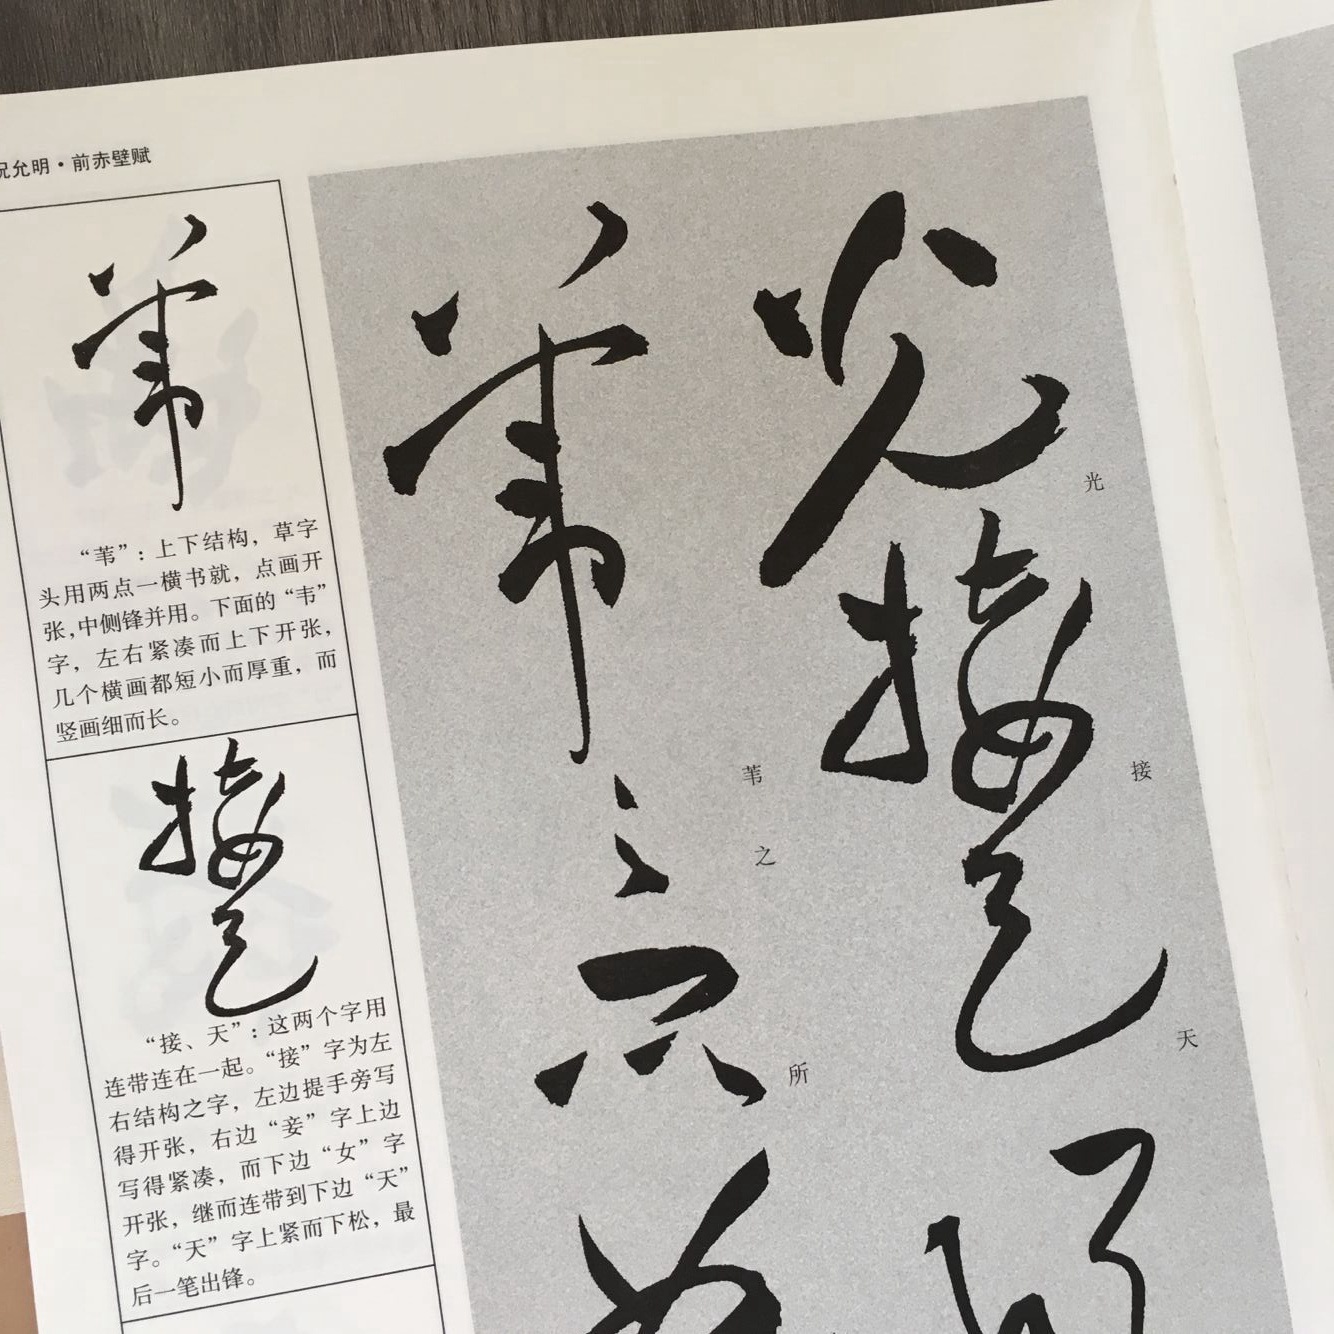 祝允明·前赤壁赋
“苇”：上下结构，草字
头用两点一横书就，点画开
张，中侧锋并用。下面的“韦”
字，左右紧凑而上下开张，
几个横画都短小而厚重，而
竖画细而长。
“接、天”：这两个字用
连带连在一起。“接”字为左
右结构之字，左边提手旁写
得开张，右边“妾”字上边
写得紧凑，而下边“女”字
开张，继而连带到下边“天”
字。“天”字上紧而下松，最
后一笔出锋。
光
接
天
苇
之
所